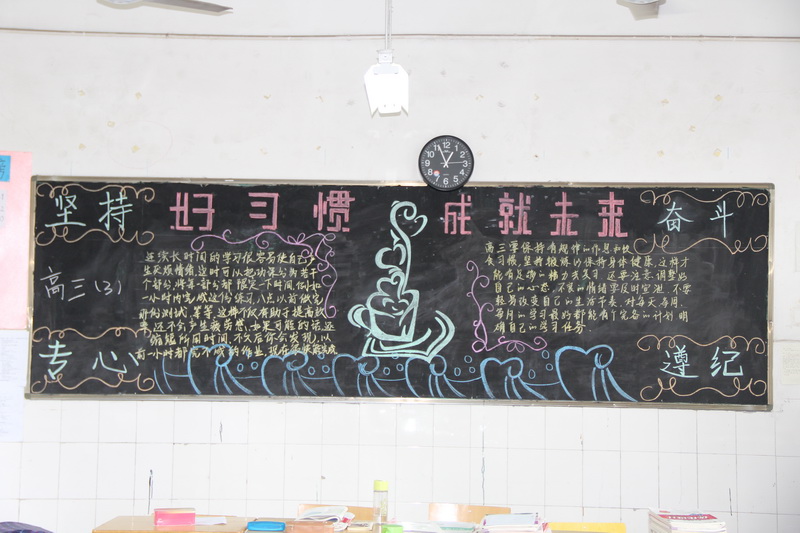 坚持
好习惯 成就未来
奋斗
高三(3)
专心
遵纪
连续长时间的学习很容易使自己产
生厌烦情绪,这时可以把功课分为若干
个部分,将每一部分都限定一下时间,例如
一小时内完成这份练习,八点以前做完
那份测试,等等,这样不仅有助于提高效
率,还不会产生疲劳感,如果可能的话,逐
步缩短所用时间,不久后你会发现,以
前一小时都完不成的作业,现在
高三要保持有规律的作息和饮
食习惯,坚持锻炼以保持身体健康,这样才
能有足够的精力来复习,还要注意调整好
自己的心态,不良的情绪要及时宣泄,不要
轻易改变自己的生活节奏,对每天每周、
每月的学习最好都能有个完备的计划,明
确自己的学习任务.
12
1
2
3
4
5
6
7
8
9
10
11